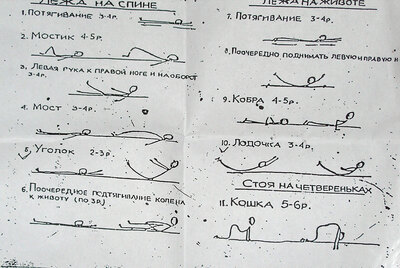 ЛЕЖА НА СПИНЕ
1. ПОТЯГИВАНИЕ 3-4р.
2. МОСТИК 4-5р.
3. ЛЕВАЯ РУКА К ПРАВОЙ НОГЕ И НАОБОРОТ
3-4р.
4. МОСТ 3-4р.
5. УГОЛОК 2-3р.
6. ПООЧЕРЕДНОЕ ПОДТЯГИВАНИЕ КОЛЕНА
К ЖИВОТУ (ПО 3Р.)
ЛЕЖА НА ЖИВОТЕ
7. ПОТЯГИВАНИЕ 3-4р.
8. ПООЧЕРЕДНО ПОДНИМАТЬ ЛЕВУЮ И ПРАВУЮ Н
9. КОБРА 4-5р.
10. ЛОДОЧКА 3-4р.
СТОЯ НА ЧЕТВЕРЕНЬКАХ
11. КОШКА 5-6р.